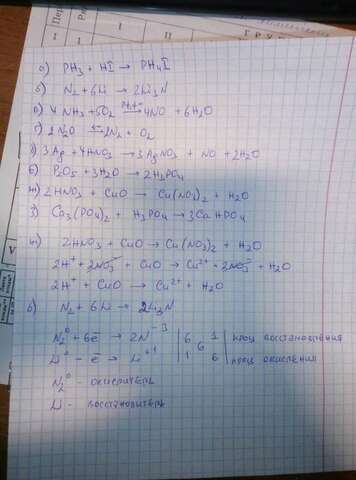 а) PH3 + HI → PH4I
б) N2 + 6Li → 2Li3N
в) 4NH3 + 5O2 → 4NO + 6H2O
г) 2N2O → 2N2 + O2
д) 3Ag + 4HNO3 → 3AgNO3 + NO + 2H2O
е) P2O5 + 3H2O → 2H3PO4
ж) 2HNO3 + CuO → Cu(NO3)2 + H2O
з) Ca3(PO4)2 + H3PO4 → 3CaHPO4
ж) 2HNO3 + CuO → Cu(NO3)2 + H2O
2H+ + 2NO3- + CuO → Cu2+ + 2NO3- + H2O
2H+ + CuO → Cu2+ + H2O
б) N2 + 6Li → 2Li3N
N2^0 + 6e → 2N^-3 | 6 | 6 | 1 | проц восстановления
Li^0 - e → Li^+1 | 1 | 6 | проц окисления
N2^0 - окислитель
Li - восстановитель